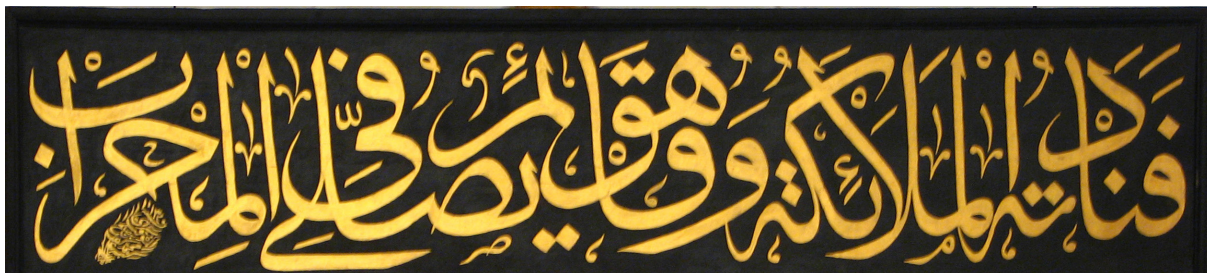 فَنَادَتْهُ الْمَلَائِكَةُ وَهُوَ قَائِمٌ يُصَلِّي فِي الْمِحْرَابِ